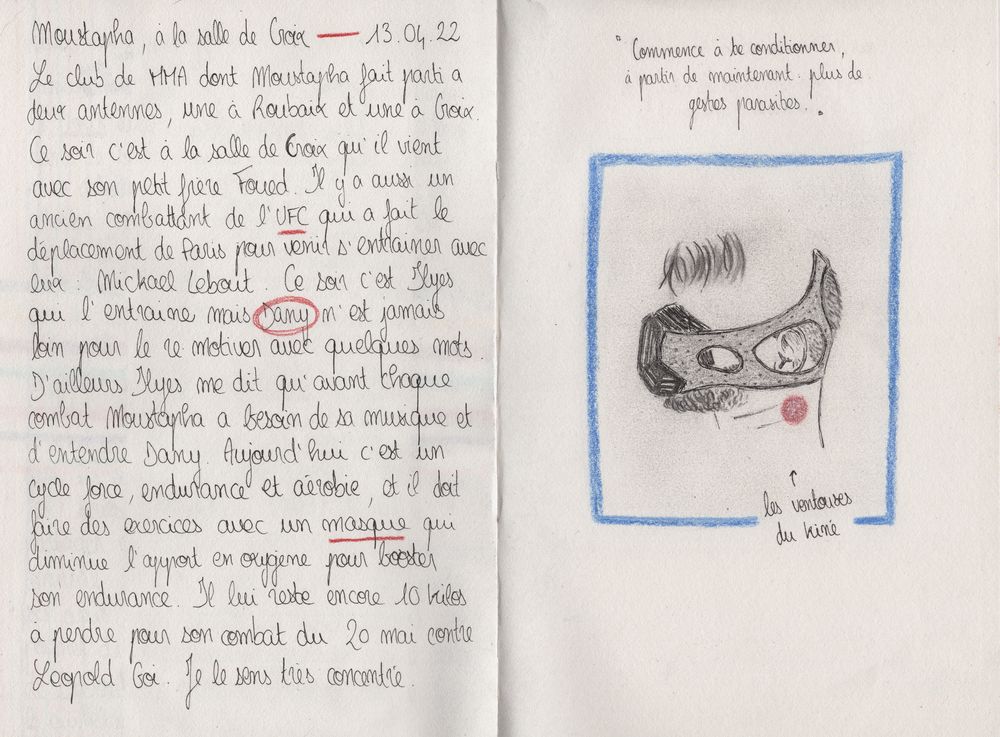 Moustapha, à la salle de Croix — 13.04.22
Le club de MMA dont Moustapha fait parti a
deux antennes, une à Roubaix et une à Croix.
Ce soir c'est à la salle de Croix qu'il vient
avec son petit frère Foued. Il y a aussi un
ancien combattant de l'UFC qui a fait le
déplacement de Paris pour venir s'entrainer avec
eux : Mickael Lebout. Ce soir c'est Ilyes
qui l'entraine mais Dany n'est jamais
loin pour le re motiver avec quelques mots.
D'ailleurs Ilyes me dit qu'avant chaque
combat Moustapha a besoin de sa musique et
d'entendre Dany. Aujourd'hui c'est un
cycle force, endurance et aérobie, et il doit
faire des exercices avec un masque qui
diminue l'apport en oxygène pour booster
son endurance. Il lui reste encore 10 kilos
à perdre pour son combat du 20 mai contre
Léopold Goi. Je le sens très concentré.
"Commence à te conditionner,
à partir de maintenant. plus de
gestes parasites."
les ventouses
du kiné